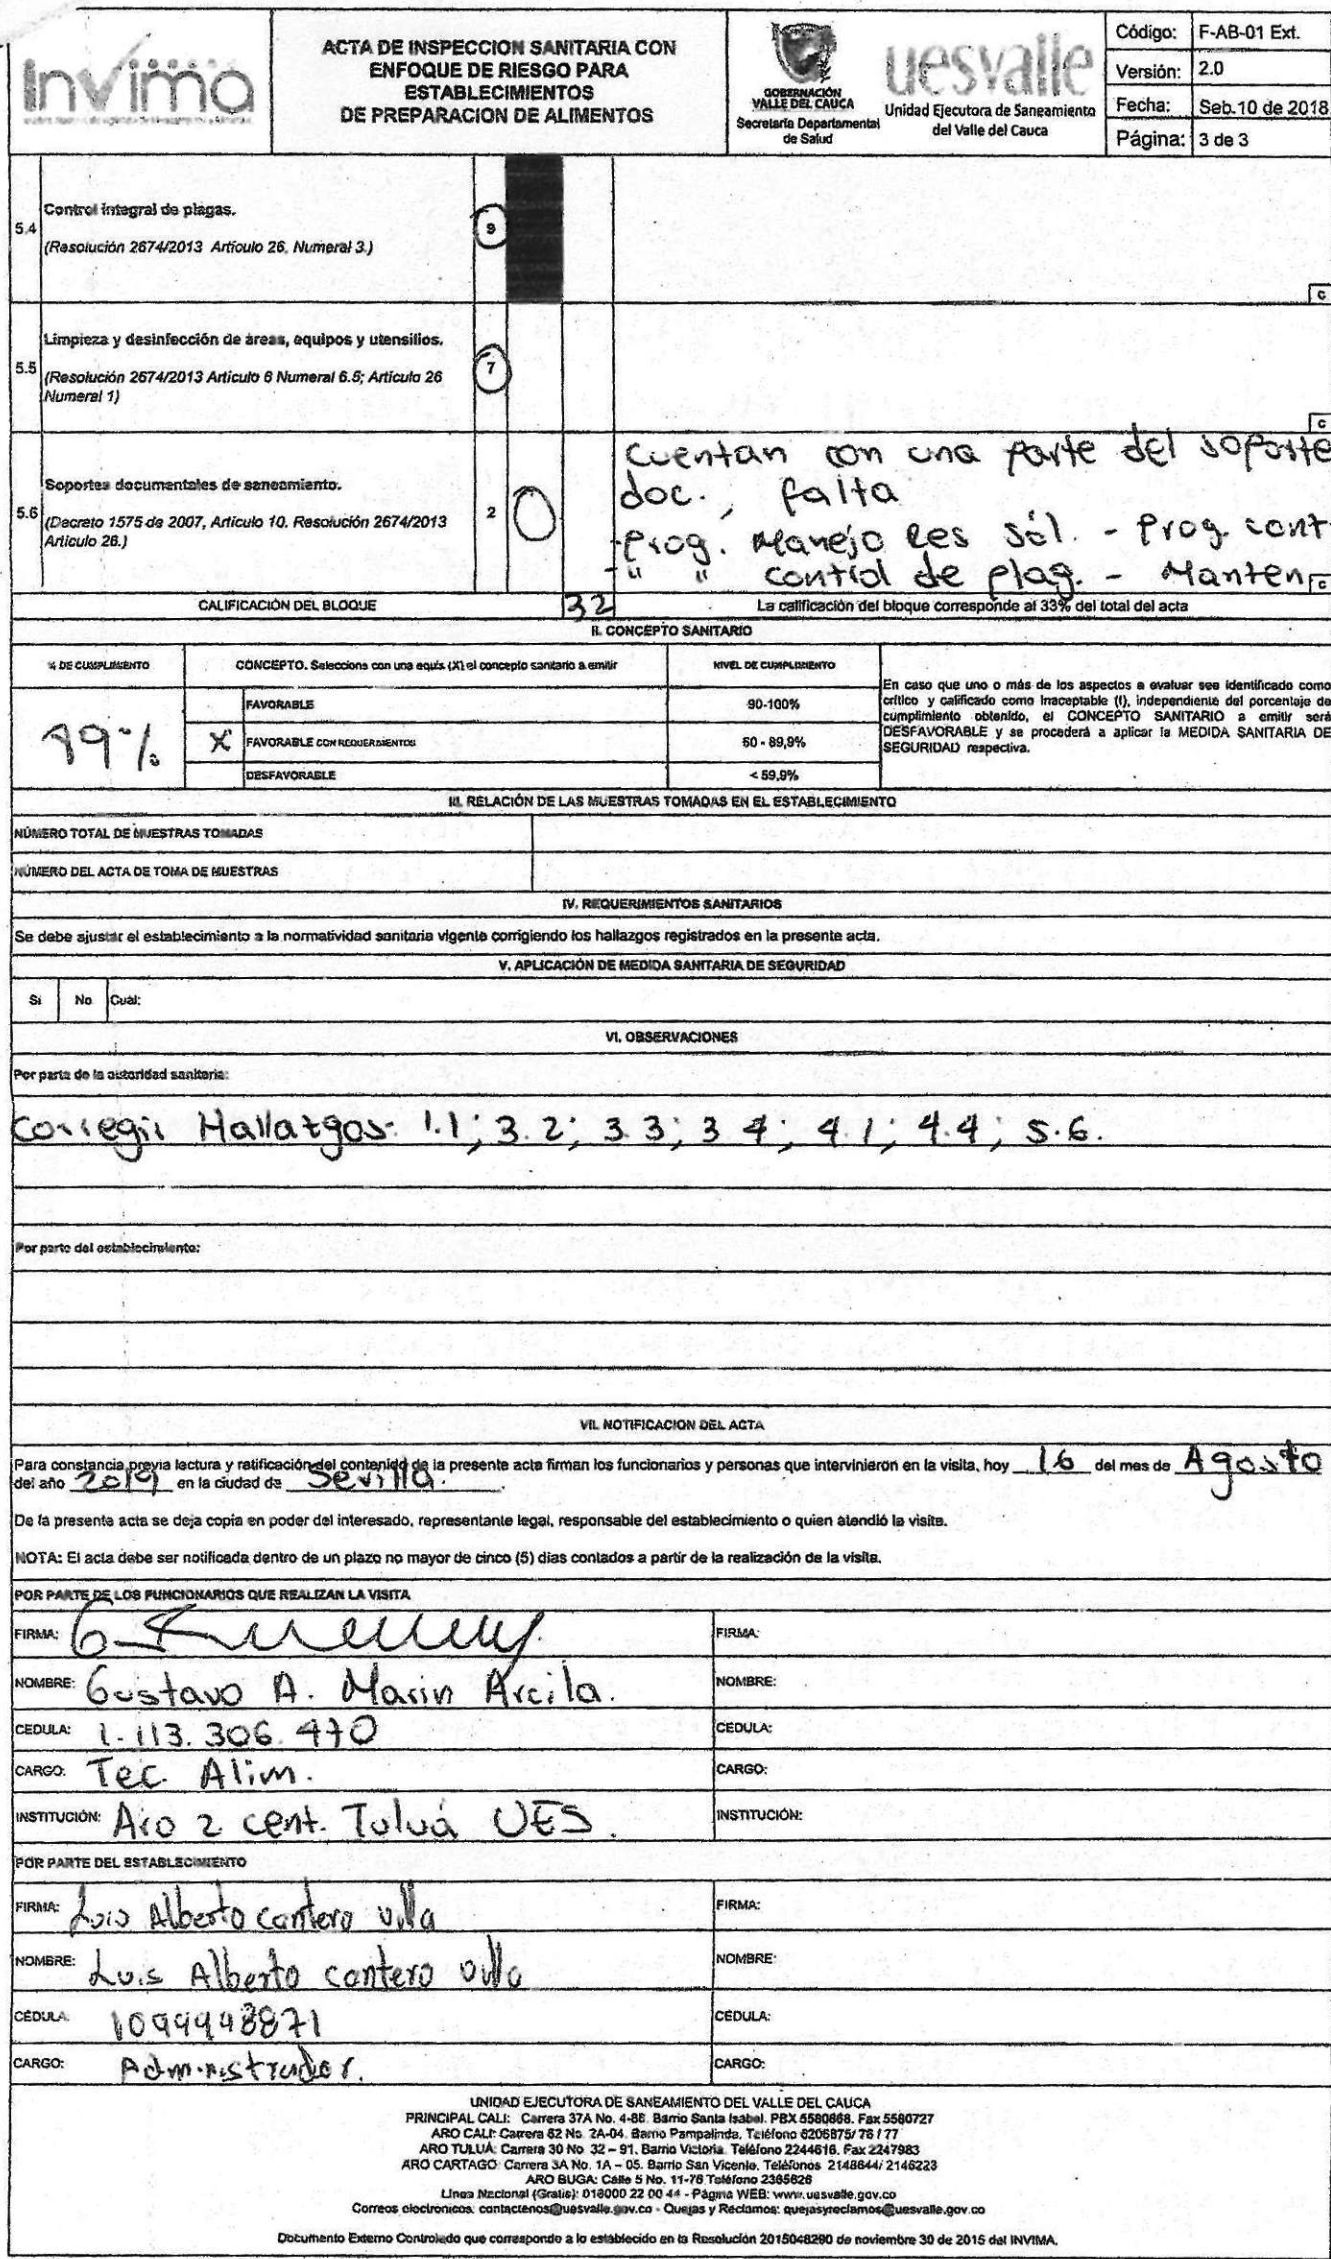 invima
ACTA DE INSPECCION SANITARIA CON
ENFOQUE DE RIESGO PARA
ESTABLECIMIENTOS
DE PREPARACION DE ALIMENTOS
GOBERNACIÓN
VALLE DEL CAUCA
Secretaría Departamental
de Salud
uesvalle
Unidad Ejecutora de Saneamiento
del Valle del Cauca
Código: F-AB-01 Ext.
Versión: 2.0
Fecha: Seb.10 de 2018
Página: 3 de 3
5.4 Control integral de plagas.
(Resolución 2674/2013 Artículo 26, Numeral 3.)
9
C
5.5 Limpieza y desinfección de áreas, equipos y utensilios.
(Resolución 2674/2013 Artículo 6 Numeral 6.5; Artículo 26
Numeral 1)
7
C
5.6 Soportes documentales de saneamiento.
(Decreto 1575 de 2007, Artículo 10. Resolución 2674/2013
Artículo 26.)
2 0
Cuentan con una parte del soporte
doc., falta
-Prog. Manejo Res Sól. - Prog. cont
- " " control de plag. - Manten
C
CALIFICACIÓN DEL BLOQUE 32 La calificación del bloque corresponde al 33% del total del acta
II. CONCEPTO SANITARIO
% DE CUMPLIMIENTO CONCEPTO. Seleccione con una equis (X) el concepto sanitario a emitir NIVEL DE CUMPLIMIENTO
FAVORABLE 90-100%
X FAVORABLE CON REQUERIMIENTOS 60 - 89,9%
DESFAVORABLE < 59,9%
En caso que uno o más de los aspectos a evaluar sea identificado como
crítico y calificado como Inaceptable (I), independiente del porcentaje de
cumplimiento obtenido, el CONCEPTO SANITARIO a emitir será
DESFAVORABLE y se procederá a aplicar la MEDIDA SANITARIA DE
SEGURIDAD respectiva.
III. RELACIÓN DE LAS MUESTRAS TOMADAS EN EL ESTABLECIMIENTO
NÚMERO TOTAL DE MUESTRAS TOMADAS
NÚMERO DEL ACTA DE TOMA DE MUESTRAS
IV. REQUERIMIENTOS SANITARIOS
Se debe ajustar el establecimiento a la normatividad sanitaria vigente corrigiendo los hallazgos registrados en la presente acta.
V. APLICACIÓN DE MEDIDA SANITARIA DE SEGURIDAD
Si No Cual:
VI. OBSERVACIONES
Por parte de la autoridad sanitaria:
Corregir Hallazgos: 1.1; 3.2; 3.3; 3 4; 4.1; 4.4; 5.6.
Por parte del establecimiento:
VII. NOTIFICACION DEL ACTA
Para constancia previa lectura y ratificación del contenido de la presente acta firman los funcionarios y personas que intervinieron en la visita, hoy 16 del mes de Agosto
del año 2019 en la ciudad de Sevilla.
De la presente acta se deja copia en poder del interesado, representante legal, responsable del establecimiento o quien atendió la visita.
NOTA: El acta debe ser notificada dentro de un plazo no mayor de cinco (5) dias contados a partir de la realización de la visita.
POR PARTE DE LOS FUNCIONARIOS QUE REALIZAN LA VISITA
FIRMA: FIRMA:
NOMBRE: Gustavo A. Marin Arcila. NOMBRE:
CEDULA: 1.113.306.470 CEDULA:
CARGO: Tec. Alim. CARGO:
INSTITUCIÓN: Aro 2 cent. Tuluá UES. INSTITUCIÓN:
POR PARTE DEL ESTABLECIMIENTO
FIRMA: Luis Alberto cantero villa FIRMA:
NOMBRE: Luis Alberto cantero villa NOMBRE:
CÉDULA: CÉDULA:
CARGO: Administrador. CARGO:
UNIDAD EJECUTORA DE SANEAMIENTO DEL VALLE DEL CAUCA
PRINCIPAL CALI: Carrera 37A No. 4-88. Barrio Santa Isabel. PBX 5580868. Fax 5580727
ARO CALI: Carrera 62 No. 2A-04. Barrio Pampalinda, Teléfono 6206875/ 76 / 77
ARO TULUÁ: Carrera 30 No 32 – 91. Barrio Victoria. Teléfono 2244616. Fax 2247983
ARO CARTAGO: Carrera 3A No. 1A – 05. Barrio San Vicente, Teléfonos 2148644/ 2146223
ARO BUGA: Calle 5 No. 11-76 Teléfono 2365626
Línea Nacional (Gratis): 018000 22 00 44 - Página WEB: www.uesvalle.gov.co
Correos electrónicos: contactenos@uesvalle.gov.co - Quejas y Reclamos: quejasyreclamos@uesvalle.gov.co
Documento Externo Controlado que corresponde a lo establecido en la Resolución 2015048290 de noviembre 30 de 2015 del INVIMA.